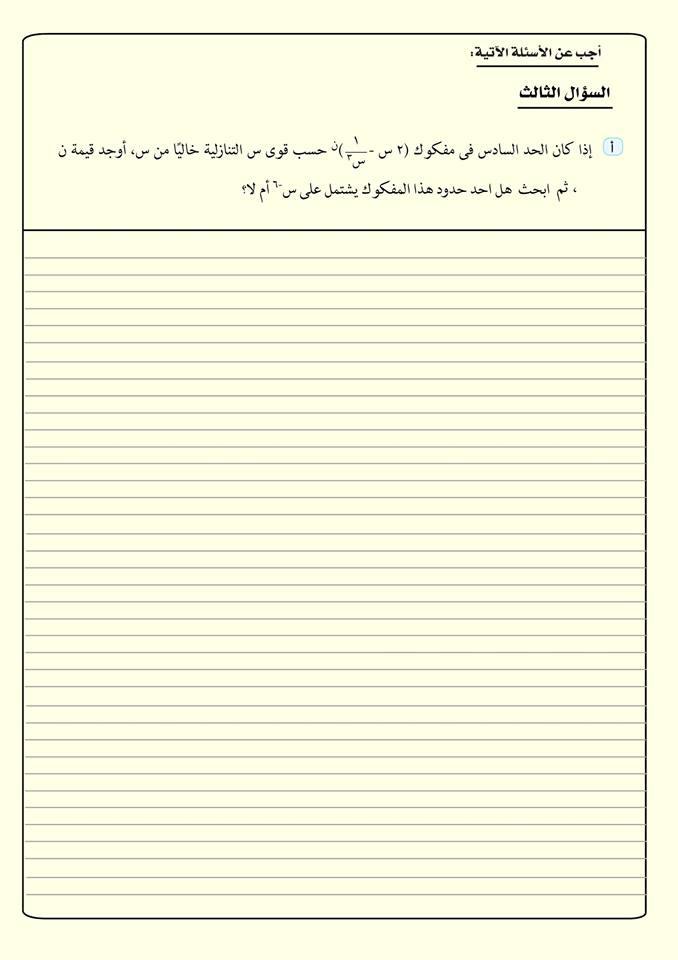 أجب عن الأسئلة الآتية:
السؤال الثالث
أ إذا كان الحد السادس فى مفكوك (٢ س - ١/س٢)ن حسب قوى س التنازلية خاليًا من س، أوجد قيمة ن
، ثم ابحث هل احد حدود هذا المفكوك يشتمل على س-٦ أم لا؟